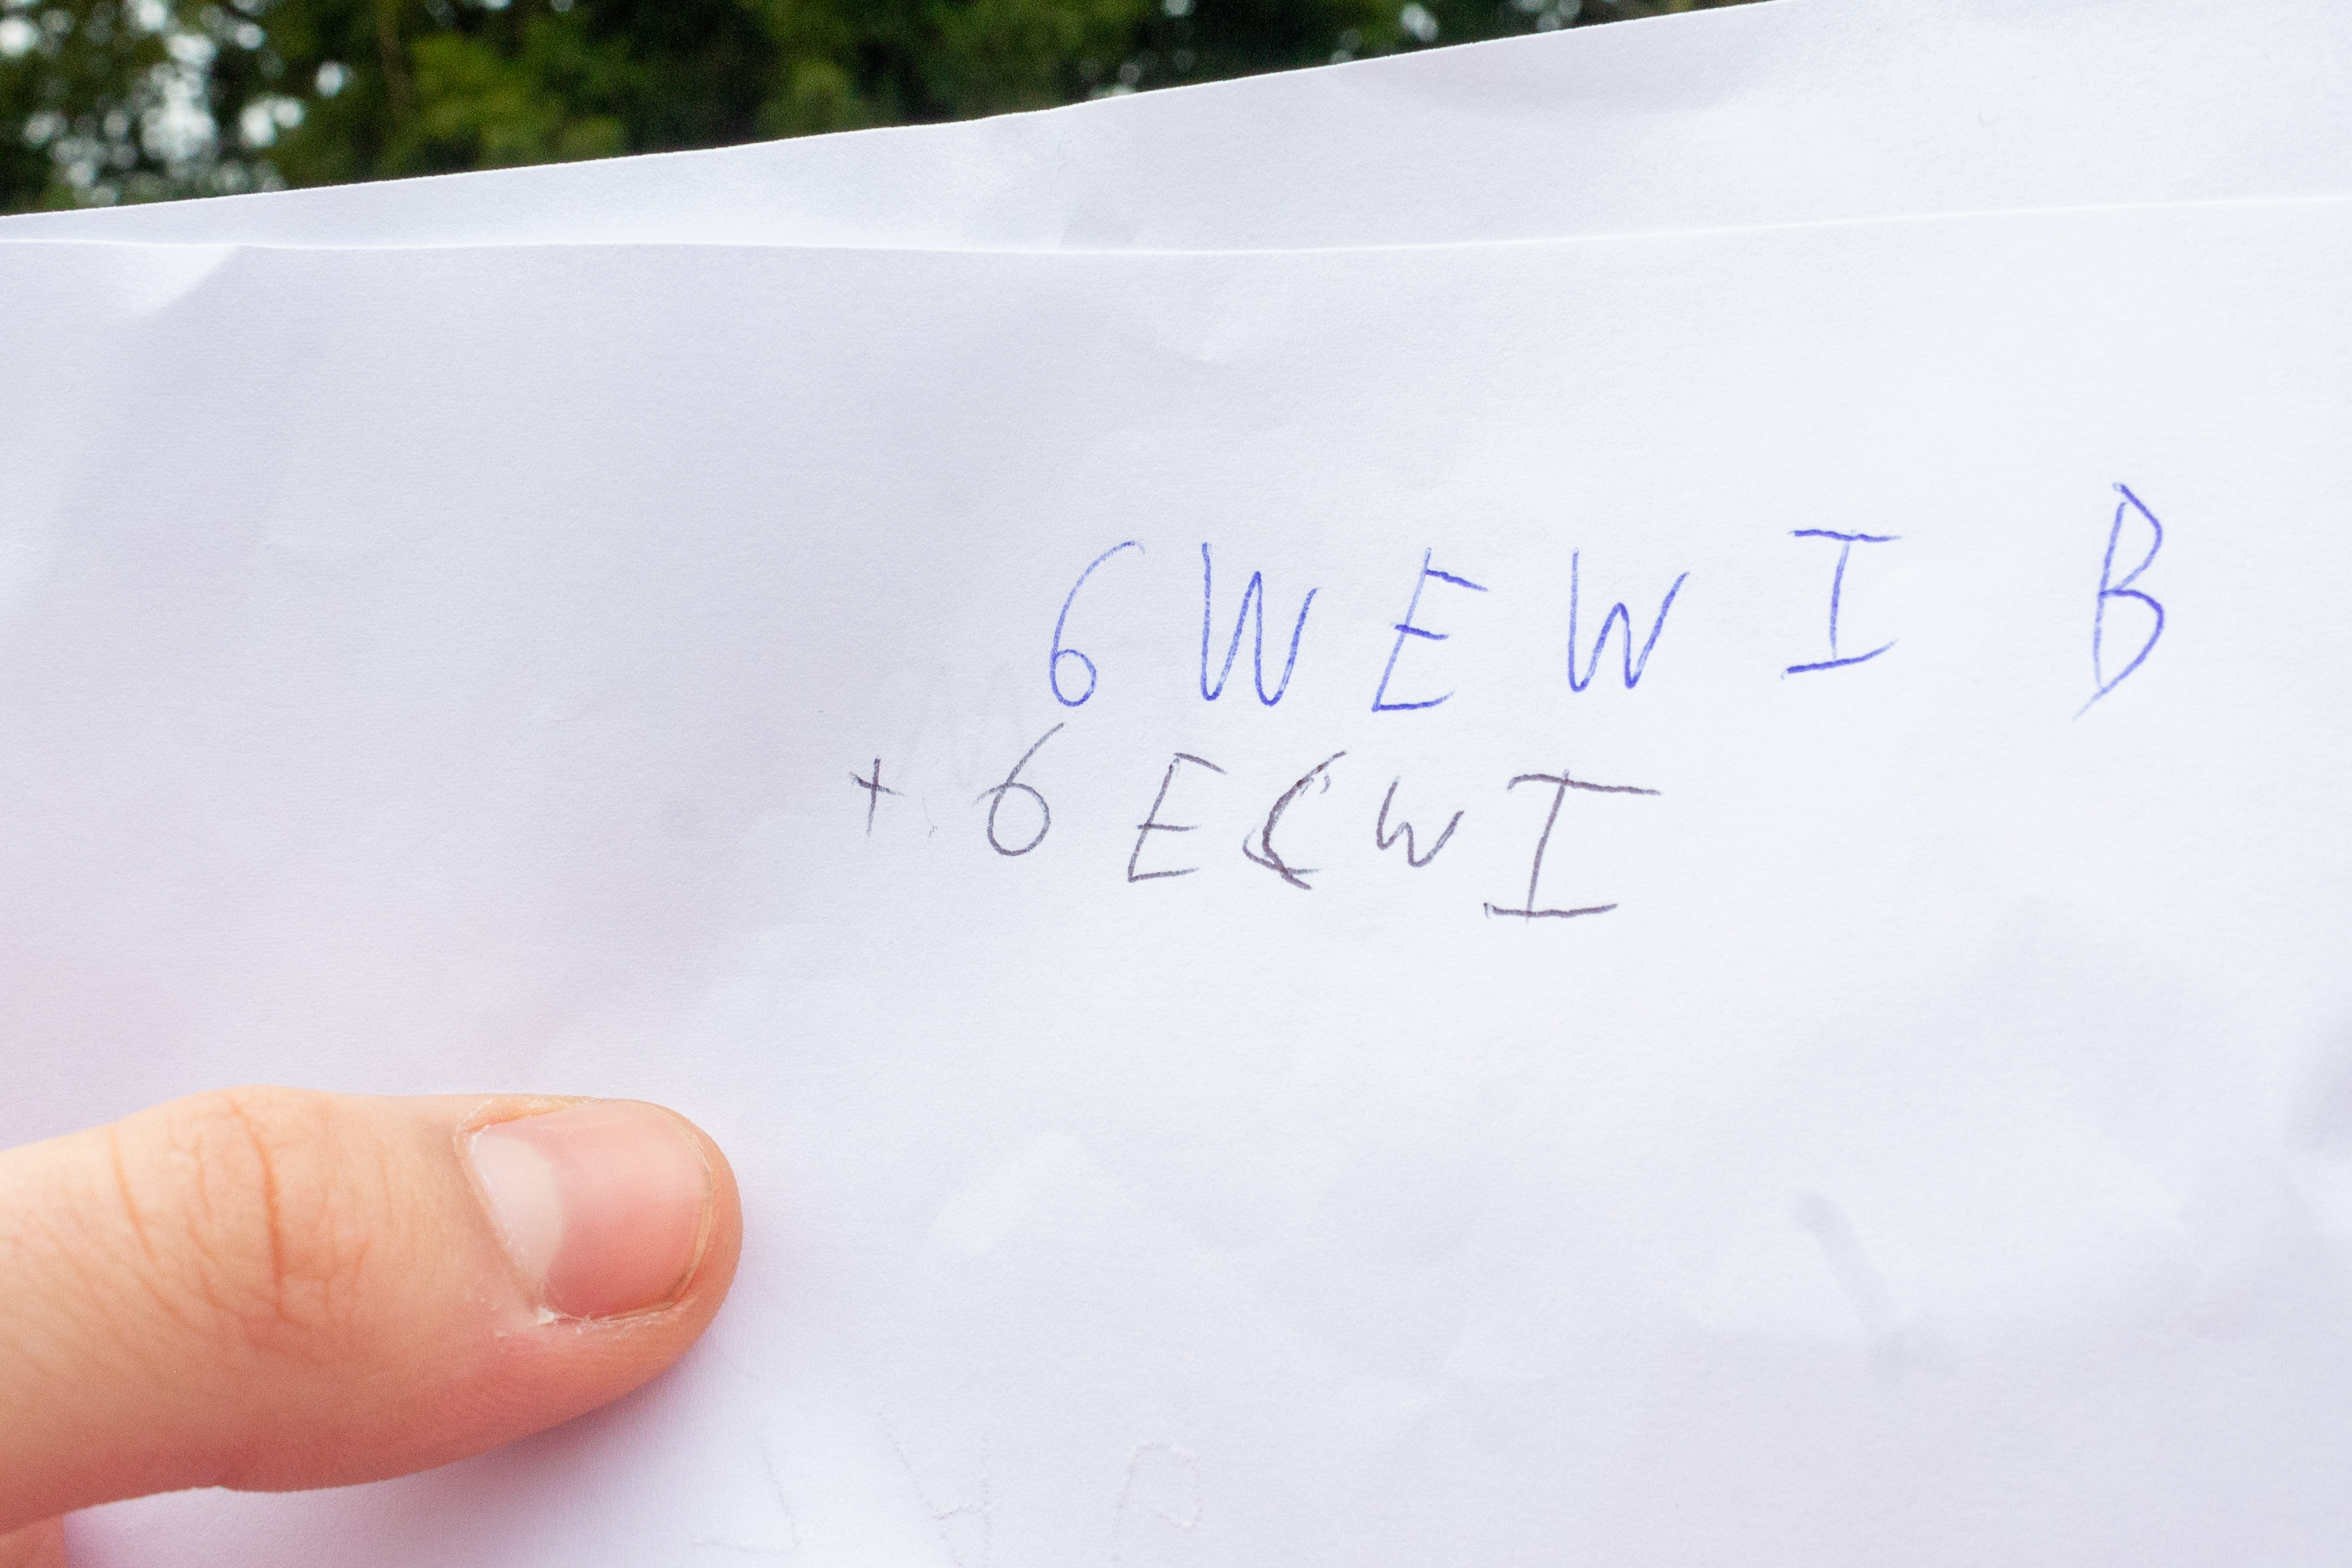 6 W E W I B
+ 6 E C W I